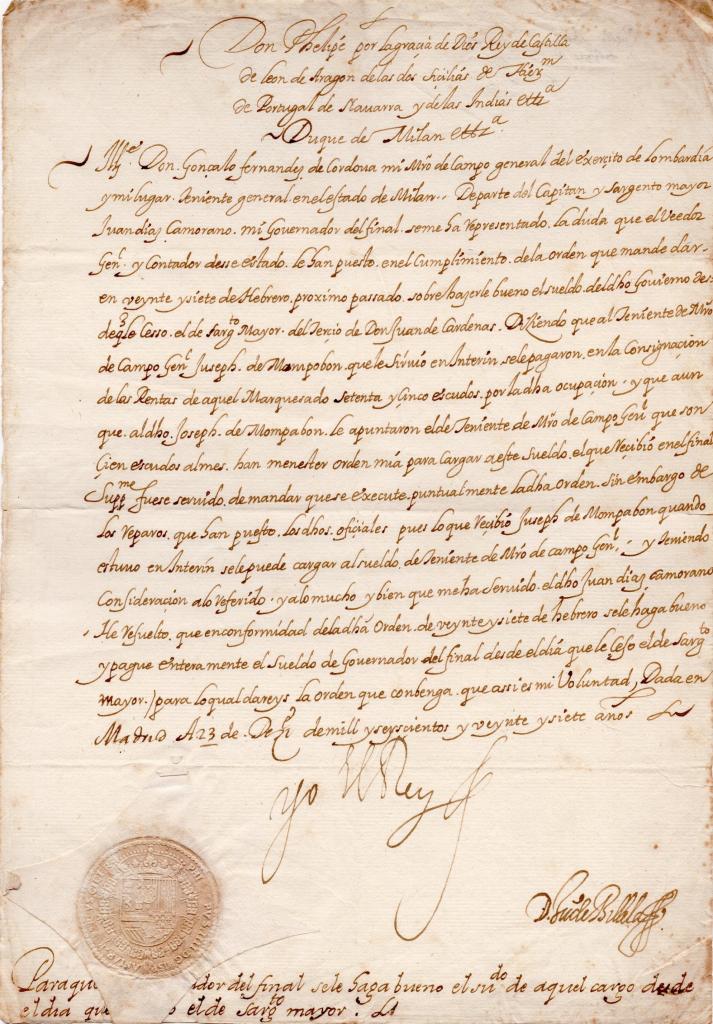 Don Phelipe por la gracia de Dios Rey de Castilla
de leon de Aragon de las dos Sicilias de Hierm
de Portugal de Navarra y de las Indias ettª
Duque de Milan ettª
Illᵉ Don Gonçalo fernandez de Cordova mi Mro de Campo general del exerçito de Lombardia
y mi lugar Teniente general en el estado de Milan. De parte del Capitan y sargento mayor
Juan diaz Camorano. mi Governador del final. se me ha representado. la duda que el Veedor
Genˡ. y Contador desse estado. le han puesto. en el Cumplimiento. de la orden que mande dar.
en veynte y siete de Hebrero, proximo passado. sobre hazerle bueno el sueldo. del dho Govierno des.
de q̃ le Cesso. el de sargᵗᵒ Mayor. del Terçio de Don Juan de Cardenas. Diziendo que al Teniente de Mro
de Campo Genˡ Juseph. de Mompobon. que le sirvio en Interin, se le pagaron. en la Consignaçion
de las Rentas de aquel Marquesado setenta y Çinco escudos. por la dha ocupaçion. y que aun
que. al dho. Joseph. de Mompabon. le apuntaron el de Teniente de Mro de Campo Genˡ que son
Çien escudos al mes. han menester orden mia para Cargar a este sueldo. el que Reçibió en el final
Suppᵐᵉ fuese servido. de mandar que se execute. puntualmente la dha Orden. sin embargo de
los reparos. que han puesto. los dhos. ofiçiales pues lo que Reçibió Juseph de Mompabon quando
estuvo en Interin se le puede cargar al sueldo. de Teniente de Mro de campo Genˡ. y teniendo
Consideraçion a lo referido. y a lo mucho y bien que me ha servido. el dho Juan diaz Camorano
He resuelto. que en conformidad de la dha Orden. de veynte y siete de hebrero se le haga bueno
y pague enteramente el sueldo de Governador del final desde el dia que le Çeso el de sargᵗᵒ
mayor. / para lo qual dareys la orden que conbenga. que assi es mi Voluntad, Dada en
Madrid A 23 de. de mill y seyscientos y veynte y siete años
yo El Rey
Paraqu dor del final se le haga bueno el suᵈᵒ de aquel cargo desde
el dia que o el de sargᵗᵒ mayor.